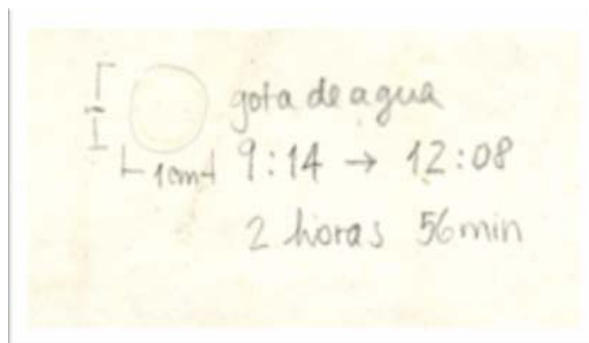 gota de agua
1cm
9:14 → 12:08
2 horas 56min